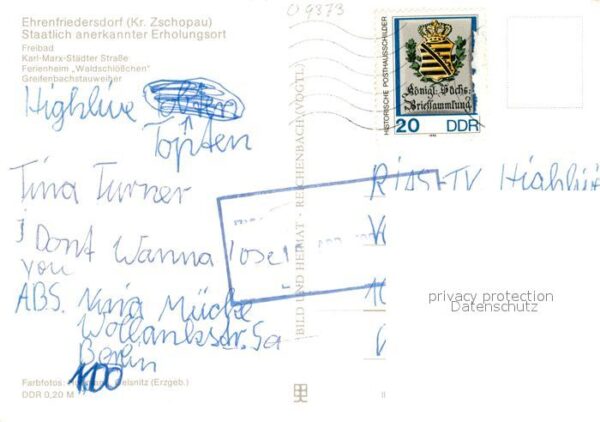 Ehrenfriedersdorf (Kr. Zschopau)
Staatlich anerkannter Erholungsort
Freibad
Karl-Marx-Städter Straße
Ferienheim „Waldschlößchen"
Greifenbachstauweiher
Highlive
Topten
Tina Turner
I Dont Wanna lose
you
ABS. Nina Mücke
Wollankstr. 5a
Berlin
1100
Farbfotos: Geisnitz (Erzgeb.)
DDR 0,20 M
BILD UND HEIMAT · REICHENBACH (VOGTL)
09873
HISTORISCHE POSTHAUSSCHILDER
Königl. Sächs.
Briefsammlung
20 DDR
1990
RIAS-TV Highlive
privacy protection
Datenschutz